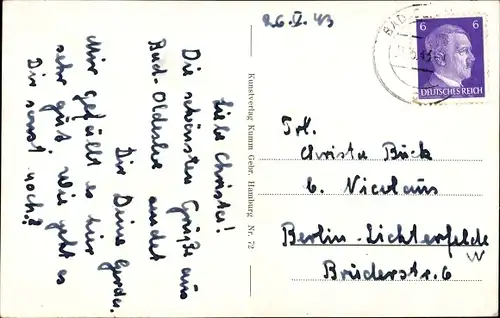 26.V.43
Liebe Christa!
Die schönsten Grüße aus
Bad-Oldesloe sendet
Dir Deine Gerda.
Mir gefällt es hier
sehr gut. Wie geht es
Dir sonst noch?
Kunstverlag Kumm Gebr. Hamburg Nr. 72
BAD
6 6
DEUTSCHES REICH
Frl.
Christa Bück
b. Nicolaus
Berlin-Lichterfelde
W
Brüderstr. 6